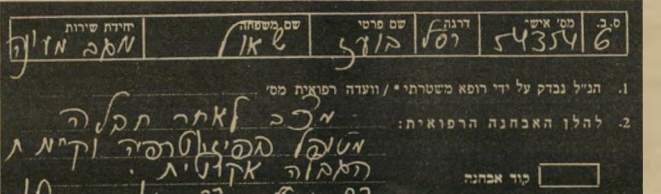 ס.ב. מס' אישי דרגה שם פרטי שם משפחה יחידת שירות
6 54354 רסל בועז שאול מגב
1. הנ"ל נבדק על ידי רופא משטרתי * / וועדה רפואית מס'
2. להלן האבחנה הרפואית:
מצב לאחר חבלה
מטופל בפיזיוטרפיה וקיימת
הגבלה
קוד אבחנה